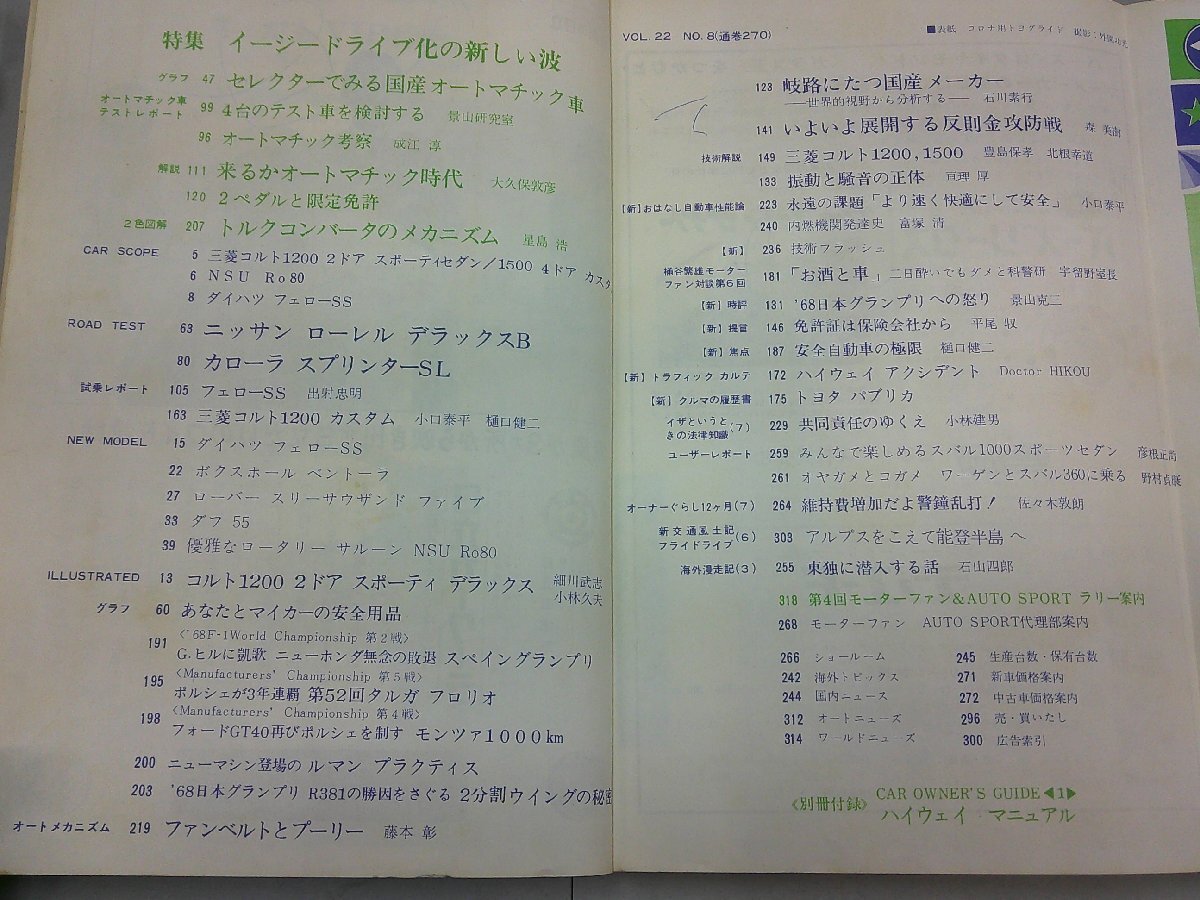 特集 イージードライブ化の新しい波
グラフ 47 セレクターでみる国産オートマチック車
オートマチック車
テストレポート 99 4台のテスト車を検討する 景山研究室
96 オートマチック考察 成江 淳
解説 111 来るかオートマチック時代 大久保敦彦
120 2ペダルと限定免許
2色図解 207 トルクコンバータのメカニズム 星島 浩
CAR SCOPE 5 三菱コルト1200 2ドア スポーティセダン/1500 4ドア カスタ
6 NSU Ro80
8 ダイハツ フェローSS
ROAD TEST 63 ニッサン ローレル デラックスB
80 カローラ スプリンターSL
試乗レポート 105 フェローSS 出射忠明
163 三菱コルト1200 カスタム 小口泰平 樋口健二
NEW MODEL 15 ダイハツ フェローSS
22 ボクスホール ベントーラ
27 ローバー スリーサウザンド ファイブ
33 ダフ 55
39 優雅なロータリー サルーン NSU Ro80
ILLUSTRATED 13 コルト1200 2ドア スポーティ デラックス 細川武志
小林久夫
グラフ 60 あなたとマイカーの安全用品
191 〈'68F-1World Championship 第2戦〉
G.ヒルに凱歌 ニューホンダ無念の敗退 スペイングランプリ
195 〈Manufacturers' Championship 第5戦〉
ポルシェが3年連覇 第52回タルガ フロリオ
198 〈Manufacturers' Championship 第4戦〉
フォードGT40再びポルシェを制す モンツァ1000km
200 ニューマシン登場の ルマン プラクティス
203 '68日本グランプリ R381の勝因をさぐる 2分割ウイングの秘密
オートメカニズム 219 ファンベルトとプーリー 藤本 彰
VOL. 22 NO. 8(通巻270)
■表紙 コロナ用トヨグライド 撮影:
123 岐路にたつ国産メーカー
——世界的視野から分析する—— 石川素行
141 いよいよ展開する反則金攻防戦 森 美樹
技術解説 149 三菱コルト1200,1500 豊島保孝 北根幸道
133 振動と騒音の正体 亘理 厚
【新】おはなし自動車性能論 223 永遠の課題「より速く快適にして安全」 小口泰平
240 内燃機関発達史 富塚 清
【新】 236 技術フラッシュ
桶谷繁雄モーター
ファン対談第6回 181 「お酒と車」二日酔いでもダメと科警研 宇留野室長
【新】時評 131 '68日本グランプリへの怒り 景山克二
【新】提言 146 免許証は保険会社から 平尾 収
【新】焦点 187 安全自動車の極限 樋口健二
【新】トラフィック カルテ 172 ハイウェイ アクシデント Doctor HIKOU
【新】クルマの履歴書 175 トヨタ パブリカ
イザというと
きの法律知識(7) 229 共同責任のゆくえ 小林建男
ユーザーレポート 259 みんなで楽しめるスバル1000スポーツセダン 彦根正
261 オヤガメとコガメ ワーゲンとスバル360に乗る 野村貞
オーナーぐらし12ヶ月(7) 264 維持費増加だよ警鐘乱打! 佐々木敦朗
新交通風土記
フライドライブ(6) 303 アルプスをこえて能登半島へ
海外漫走記(3) 255 東独に潜入する話 石山四郎
318 第4回モーターファン&AUTO SPORT ラリー案内
268 モーターファン AUTO SPORT代理部案内
266 ショールーム
242 海外トピックス
244 国内ニュース
312 オートニューズ
314 ワールドニューズ
245 生産台数・保有台数
271 新車価格案内
272 中古車価格案内
296 売・買いたし
300 広告索引
《別冊付録》 CAR OWNER'S GUIDE ◀1▶
ハイウェイ・マニュアル